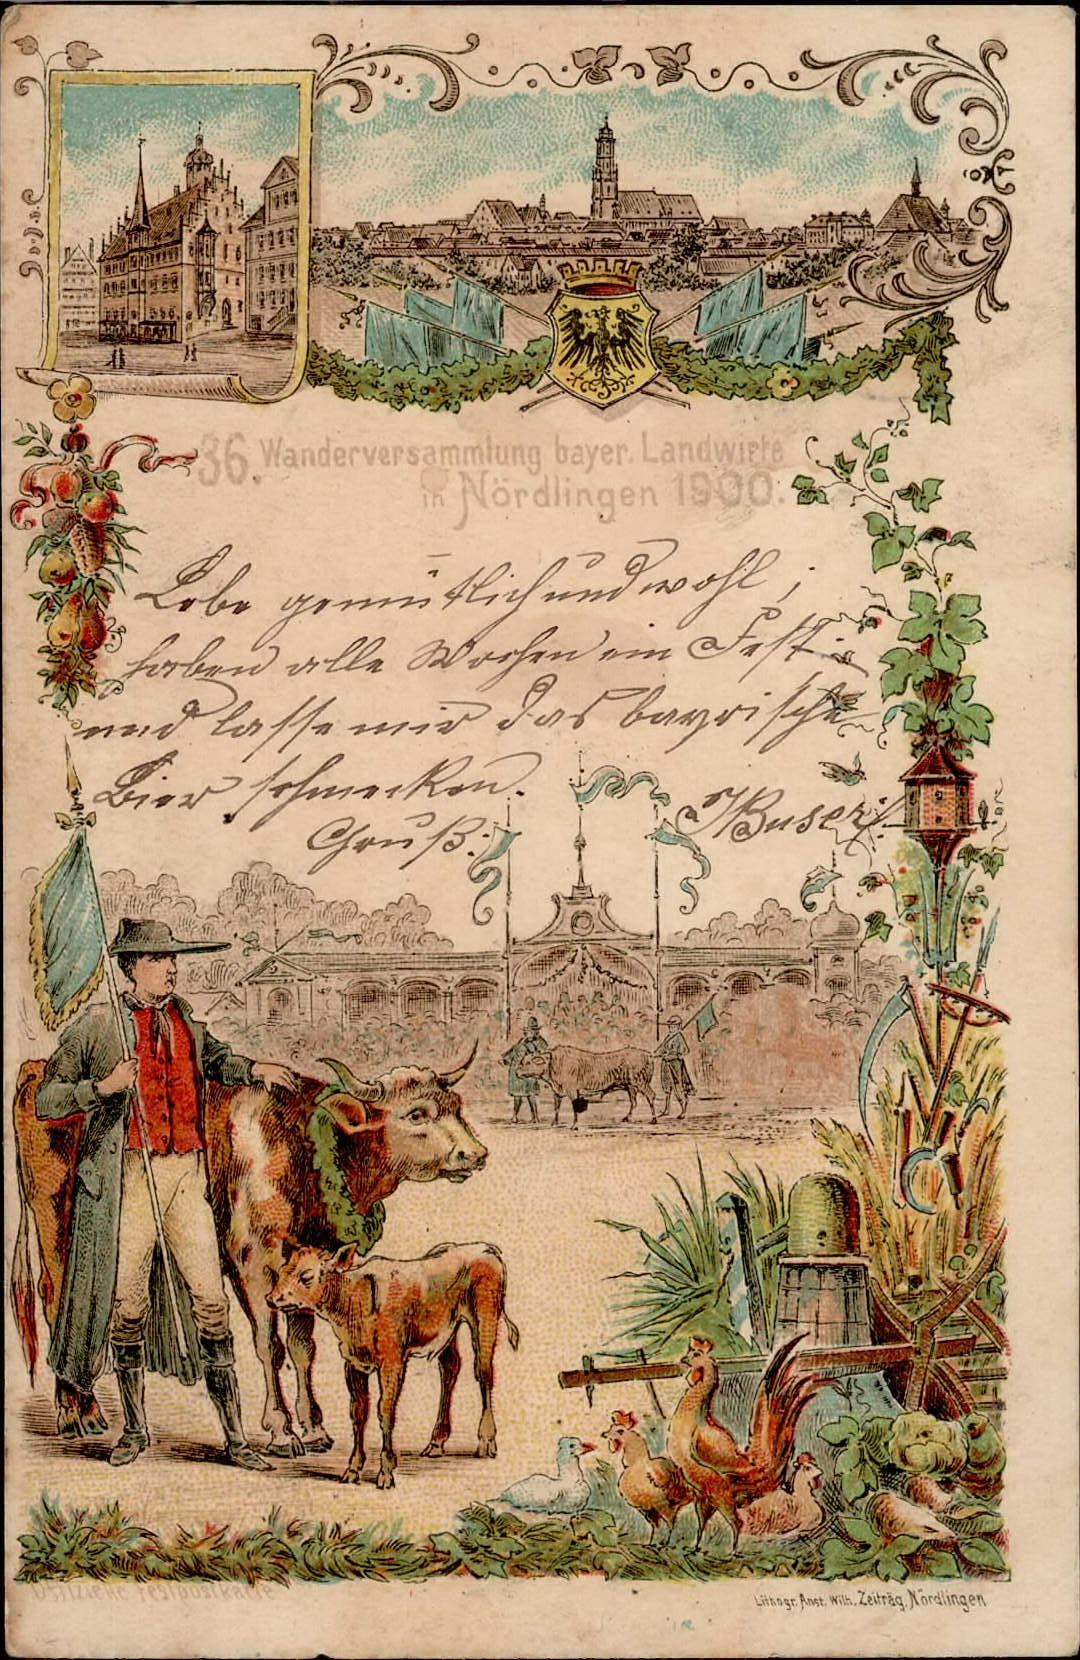 36. Wanderversammlung bayer. Landwirte
in Nördlingen 1900.
Lebe gemütlich und wohl,
haben alle Wochen ein Fest
und lasse mir das bayrische
Bier schmecken.
Gruß.
Offizielle Festpostkarte
Lithogr. Anst. Wilh. Zeiträg, Nördlingen